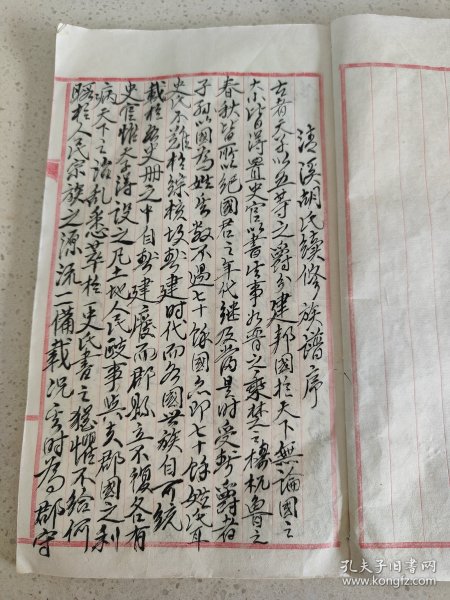 清溪胡氏續修族譜序
古者天子以五等之爵分建邦國於天下無論國之
大小皆得置史官以書時事如晉之乘楚之檮杌魯之
春秋皆所以紀國君之年代繼及當其時受封爵者
子孫以國為姓其數不過七十餘國亦即七十餘姓
史氏不難於綜核故封建時代而各國世族自可統
載於各史冊之中自封建廢而郡縣立不復各有
史官惟太史設之凡土地人民政事與夫郡國之利
病天下之治亂悉萃於一史氏書之猶懼不給何
暇於人民宗族之源流一一備載況其時為郡守
孔夫子旧书网
www.kongfz.com